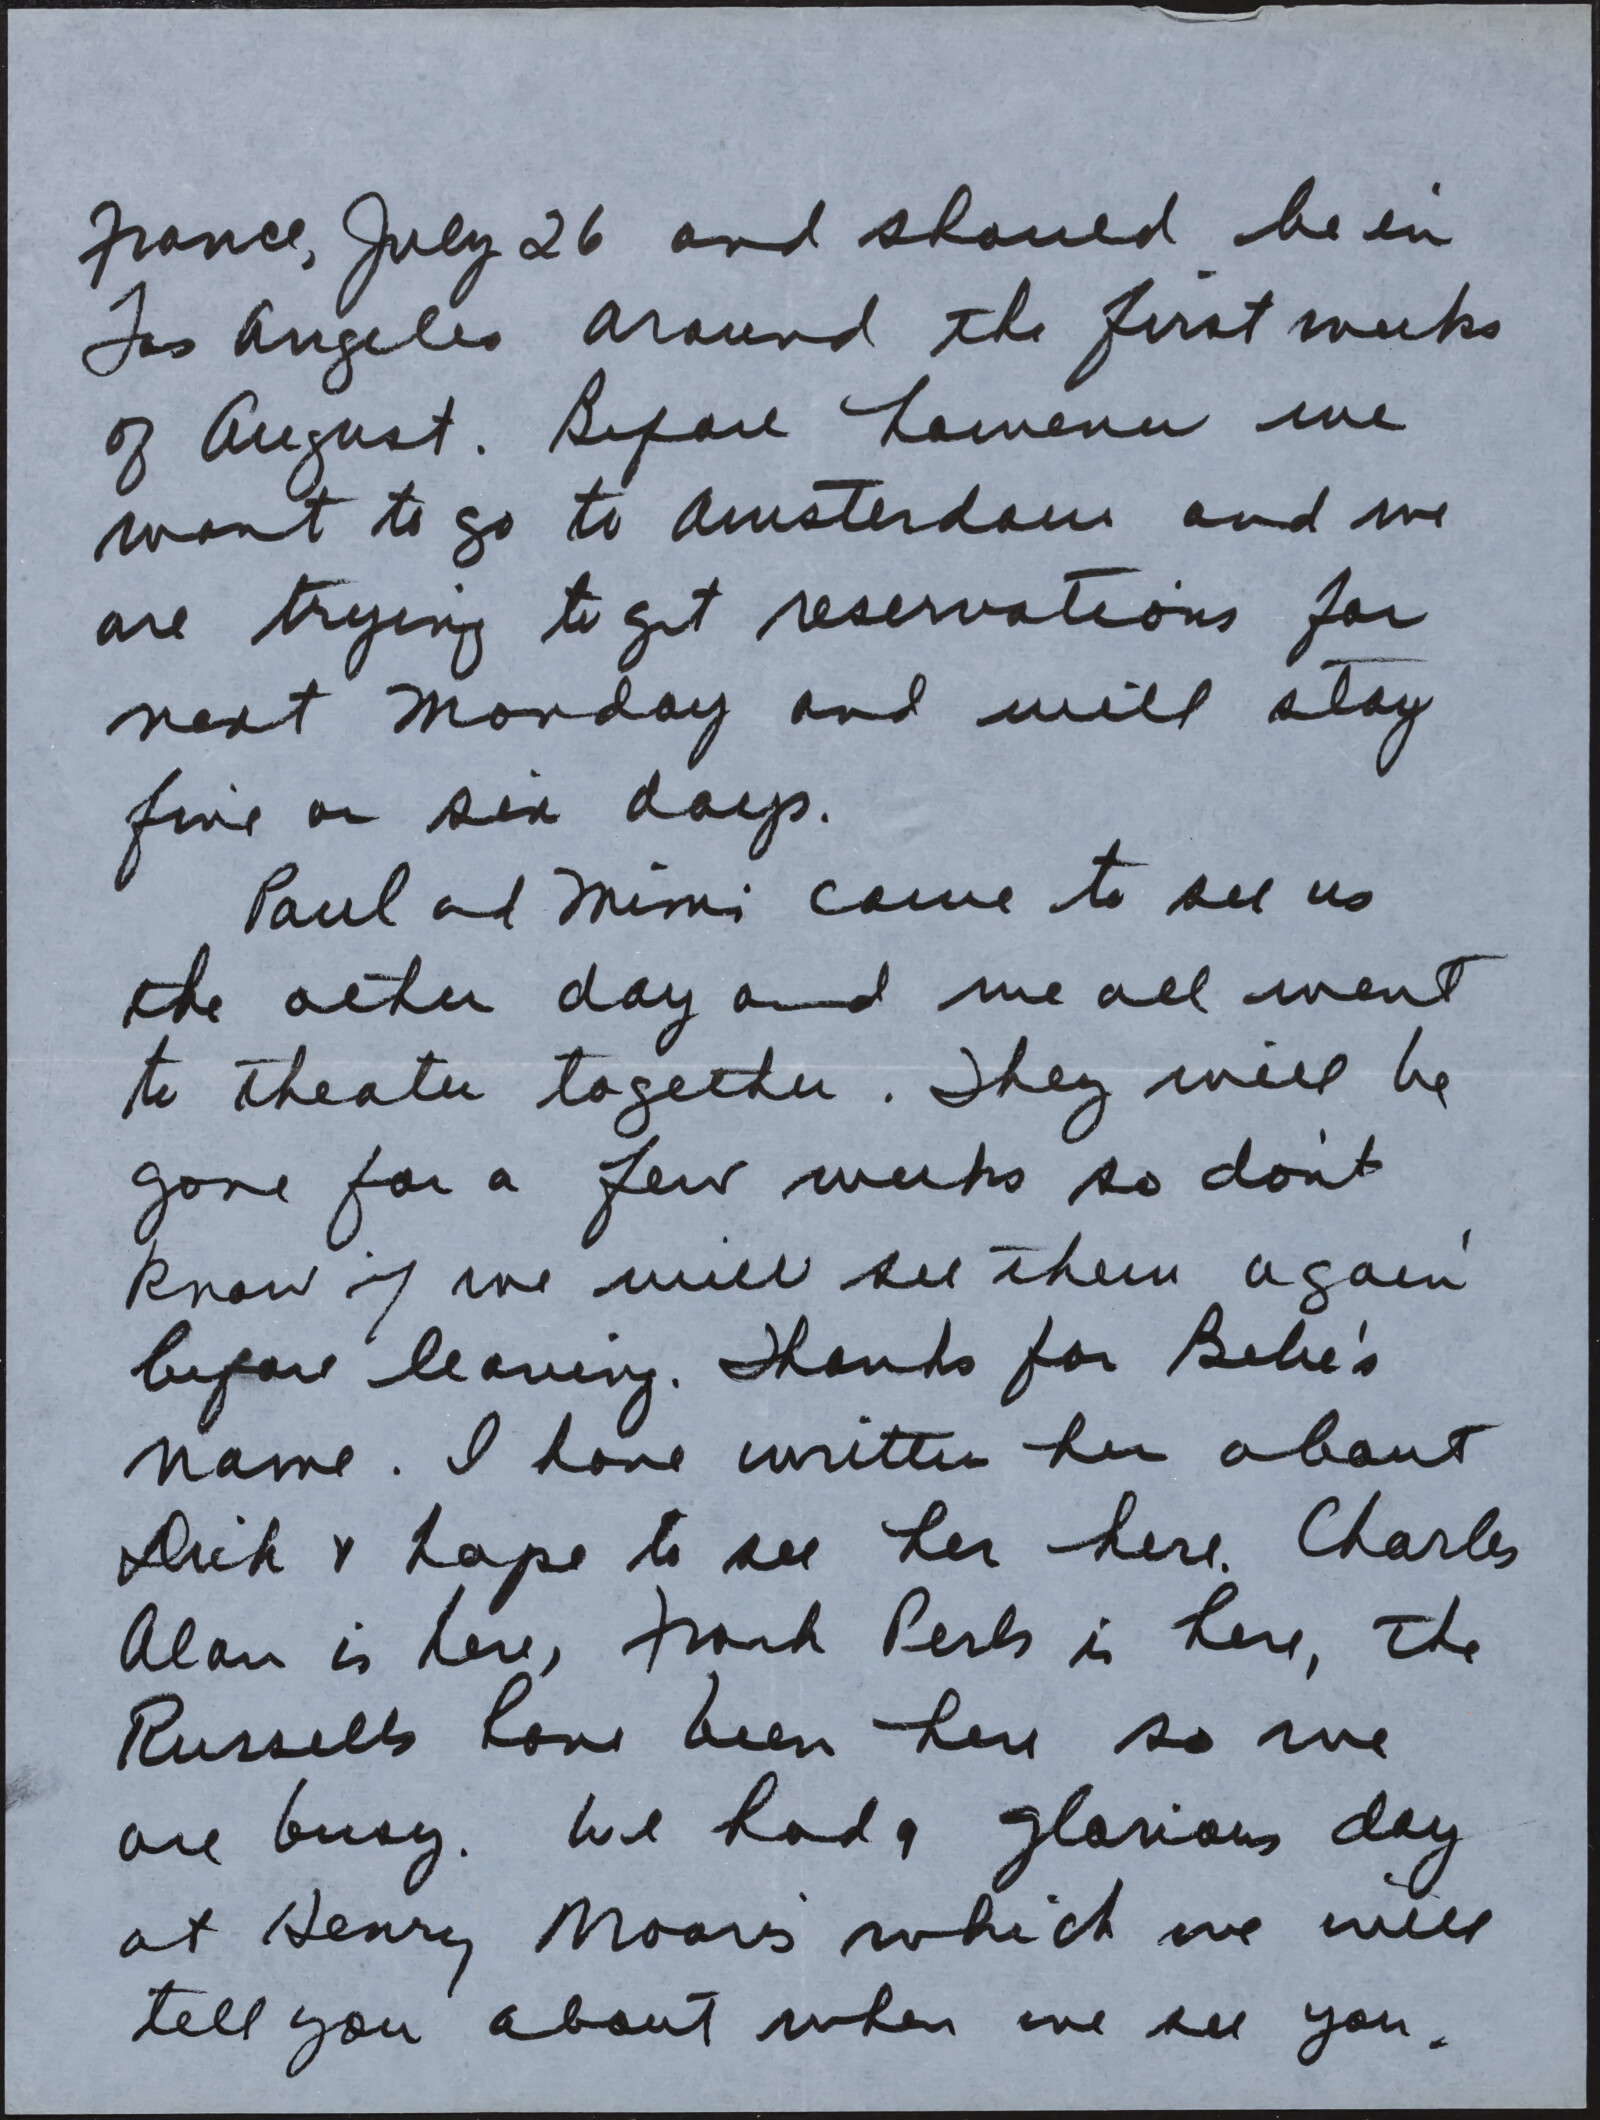 France, July 26 and should be in
Los Angeles around the first weeks
of August. Before however we
want to go to Amsterdam and we
are trying to get reservations for
next Monday and will stay
five or six days.
Paul and Mimi came to see us
the other day and we all went
to theater together. They will be
gone for a few weeks so don't
know if we will see them again
before leaving. Thanks for Bebe's
name. I have written her about
Dick & hope to see her here. Charles
Alan is here, Frank Perls is here, the
Russells have been here so we
are busy. We had a glorious day
at Henry Moore's which we will
tell you about when we see you.